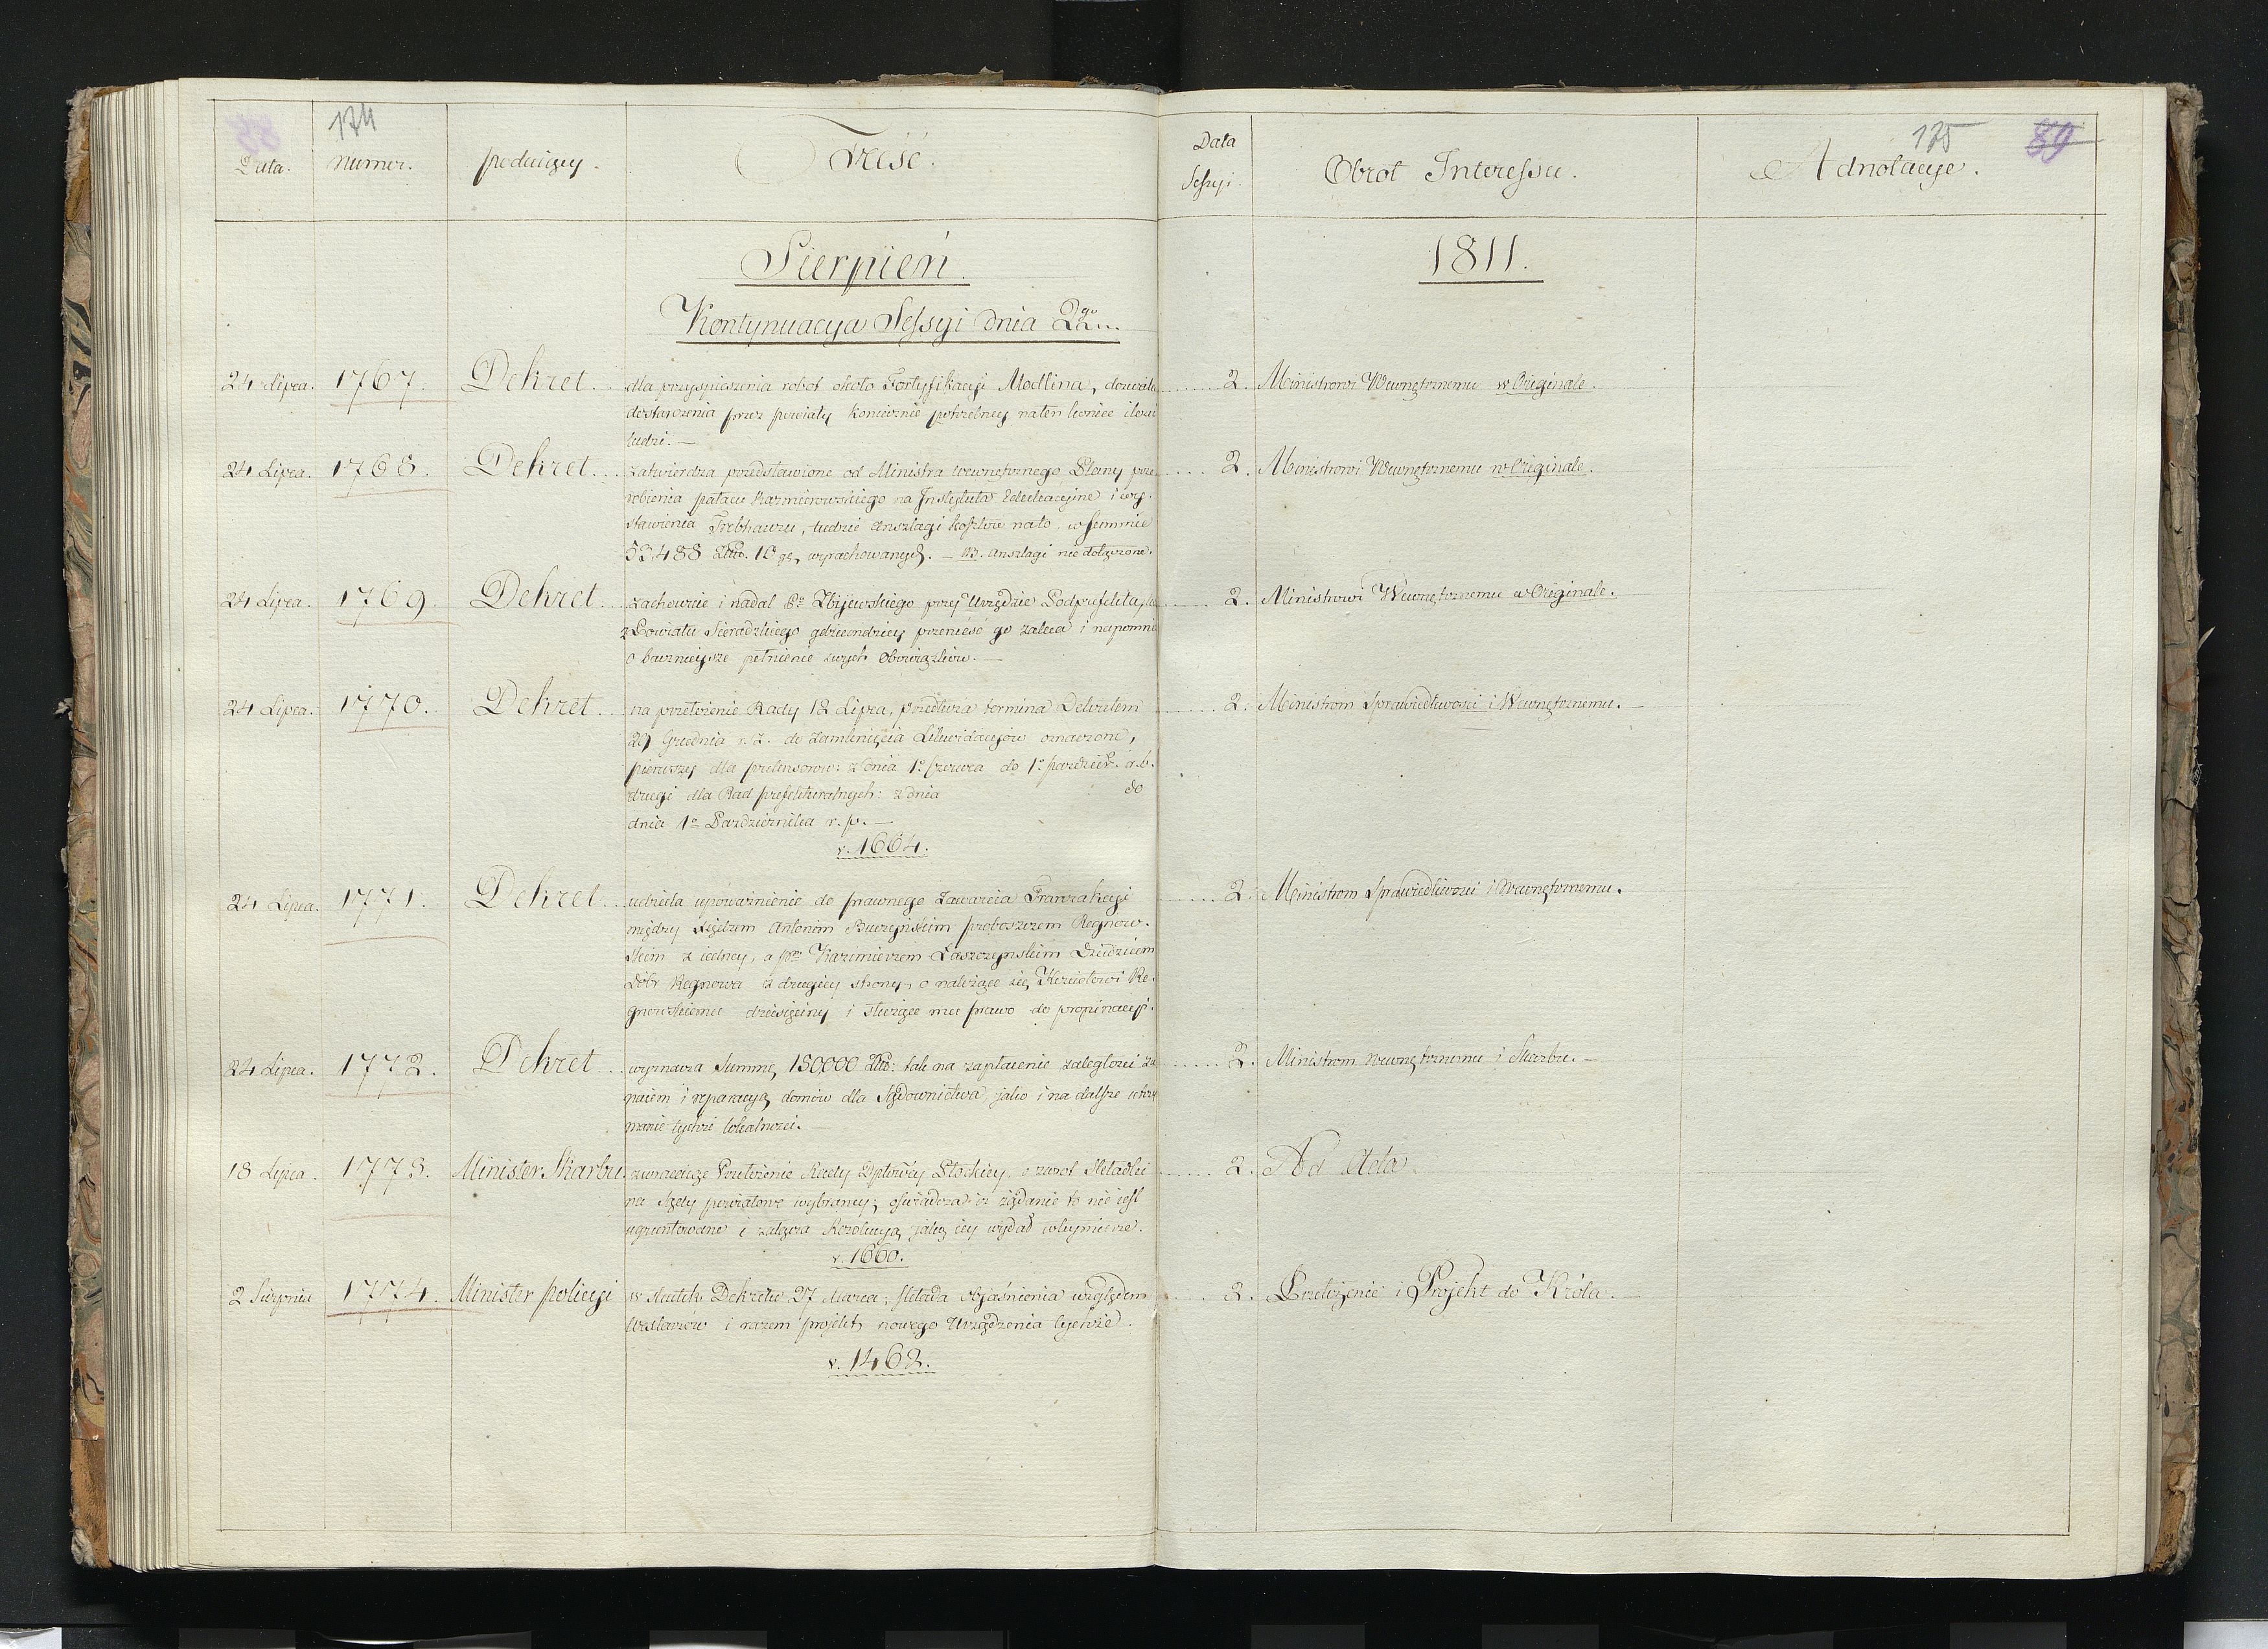 174
Data. Numer. Podaiący. Treść.
Data Sessyi. Obrot Interessu. Adnotacye.
175 89
Sierpień. 1811.
Kontynuacya Sessyi dnia 2go
24 Lipca. 1767. Dekret dla przyspieszenia robot około Fortyfikacyi Modlina, dozwala 2. Ministrowi Wewnętrznemu w Originale.
dostarczenia przez powiaty koniecznie potrzebney na ten koniec ilości
ludzi. —
24 Lipca. 1768. Dekret zatwierdza przedstawione od Ministra wewnętrznego Plany prze 2. Ministrowi Wewnętrznemu w Originale.
robienia pałacu Kazmierowskiego na Instytuta Edukacyjne i wy-
stawienia Trebhauzu, tudzież Anszlagi kosztów na to, w summie
53488 Złtp. 10 gr, wyrachowanych. — NB. Anszlagi nie dołączone.
24 Lipca. 1769. Dekret zachowuie i nadal Pa Zbijewskiego przy Urzędzie Podprefekta, 2. Ministrowi Wewnętrznemu w Originale.
z Powiatu Sieradzkiego gdzieindziey przenieść go zaleca i napomni
o bacznieysze pełnienie swych Obowiązków. —
24 Lipca. 1770. Dekret na przełożenie Rady 12 Lipca, przedłuża termina Dekretem 2. Ministrom Sprawiedliwości i Wewnętrznemu. —
29 Grudnia r. z. do zamknięcia Likwidacyow oznaczone,
pierwszy dla pretensorow: z dnia 1o Czerwca do 1o Paździer. r. b.
drugi dla Rad prefekturalnych: z dnia do
dnia 1o Października r. p. —
v. 1664.
24 Lipca. 1771. Dekret udziela upoważnienie do prawnego zawarcia Tranzakcyi 2. Ministrom Sprawiedliwości i Wewnętrznemu.
między Xiędzem Antonim Buczyńskim proboszczem Regnow-
skim z iedney, a Pm Kazimierzem Łaszczyńskim Dziedzicem
Dóbr Regnowa z drugiey strony, o należące się Kościołowi Re-
gnowskiemu dziesięciny i służące mu prawo do propinacyi.
24 Lipca. 1772. Dekret wyznacza Summę 150000 Złtp: tak na zapłacenie zaległości za 2. Ministrom Wewnętrznemu i Skarbu. —
naiem i reparacyą domów dla Sądownictwa, jako i na dalsze utrzy
manie tychże lokalności. —
18 Lipca. 1773. Minister Skarbu. zwracaiąc Przełożenie Rady Dptowey Płockiey, o zwrot Składki 2. Ad Acta.
na Sądy powiatowe wybraney; oświadcza: iż żądanie to nie iest
ugruntowane i załącza Rezolucyą jaką iey wydał w tey mierze.
v. 1660.
2 Sierpnia 1774. Minister policyi w skutek Dekretu 27 Marca, składa objaśnienia względem 2. Przełożenie i Projekt do Króla. —
i razem projekt nowego Urządzenia tychże.
v. 1462.